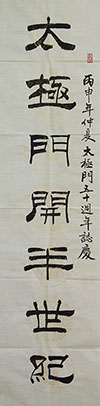 太極門開半世紀
丙申年仲夏太極門五十週年誌慶